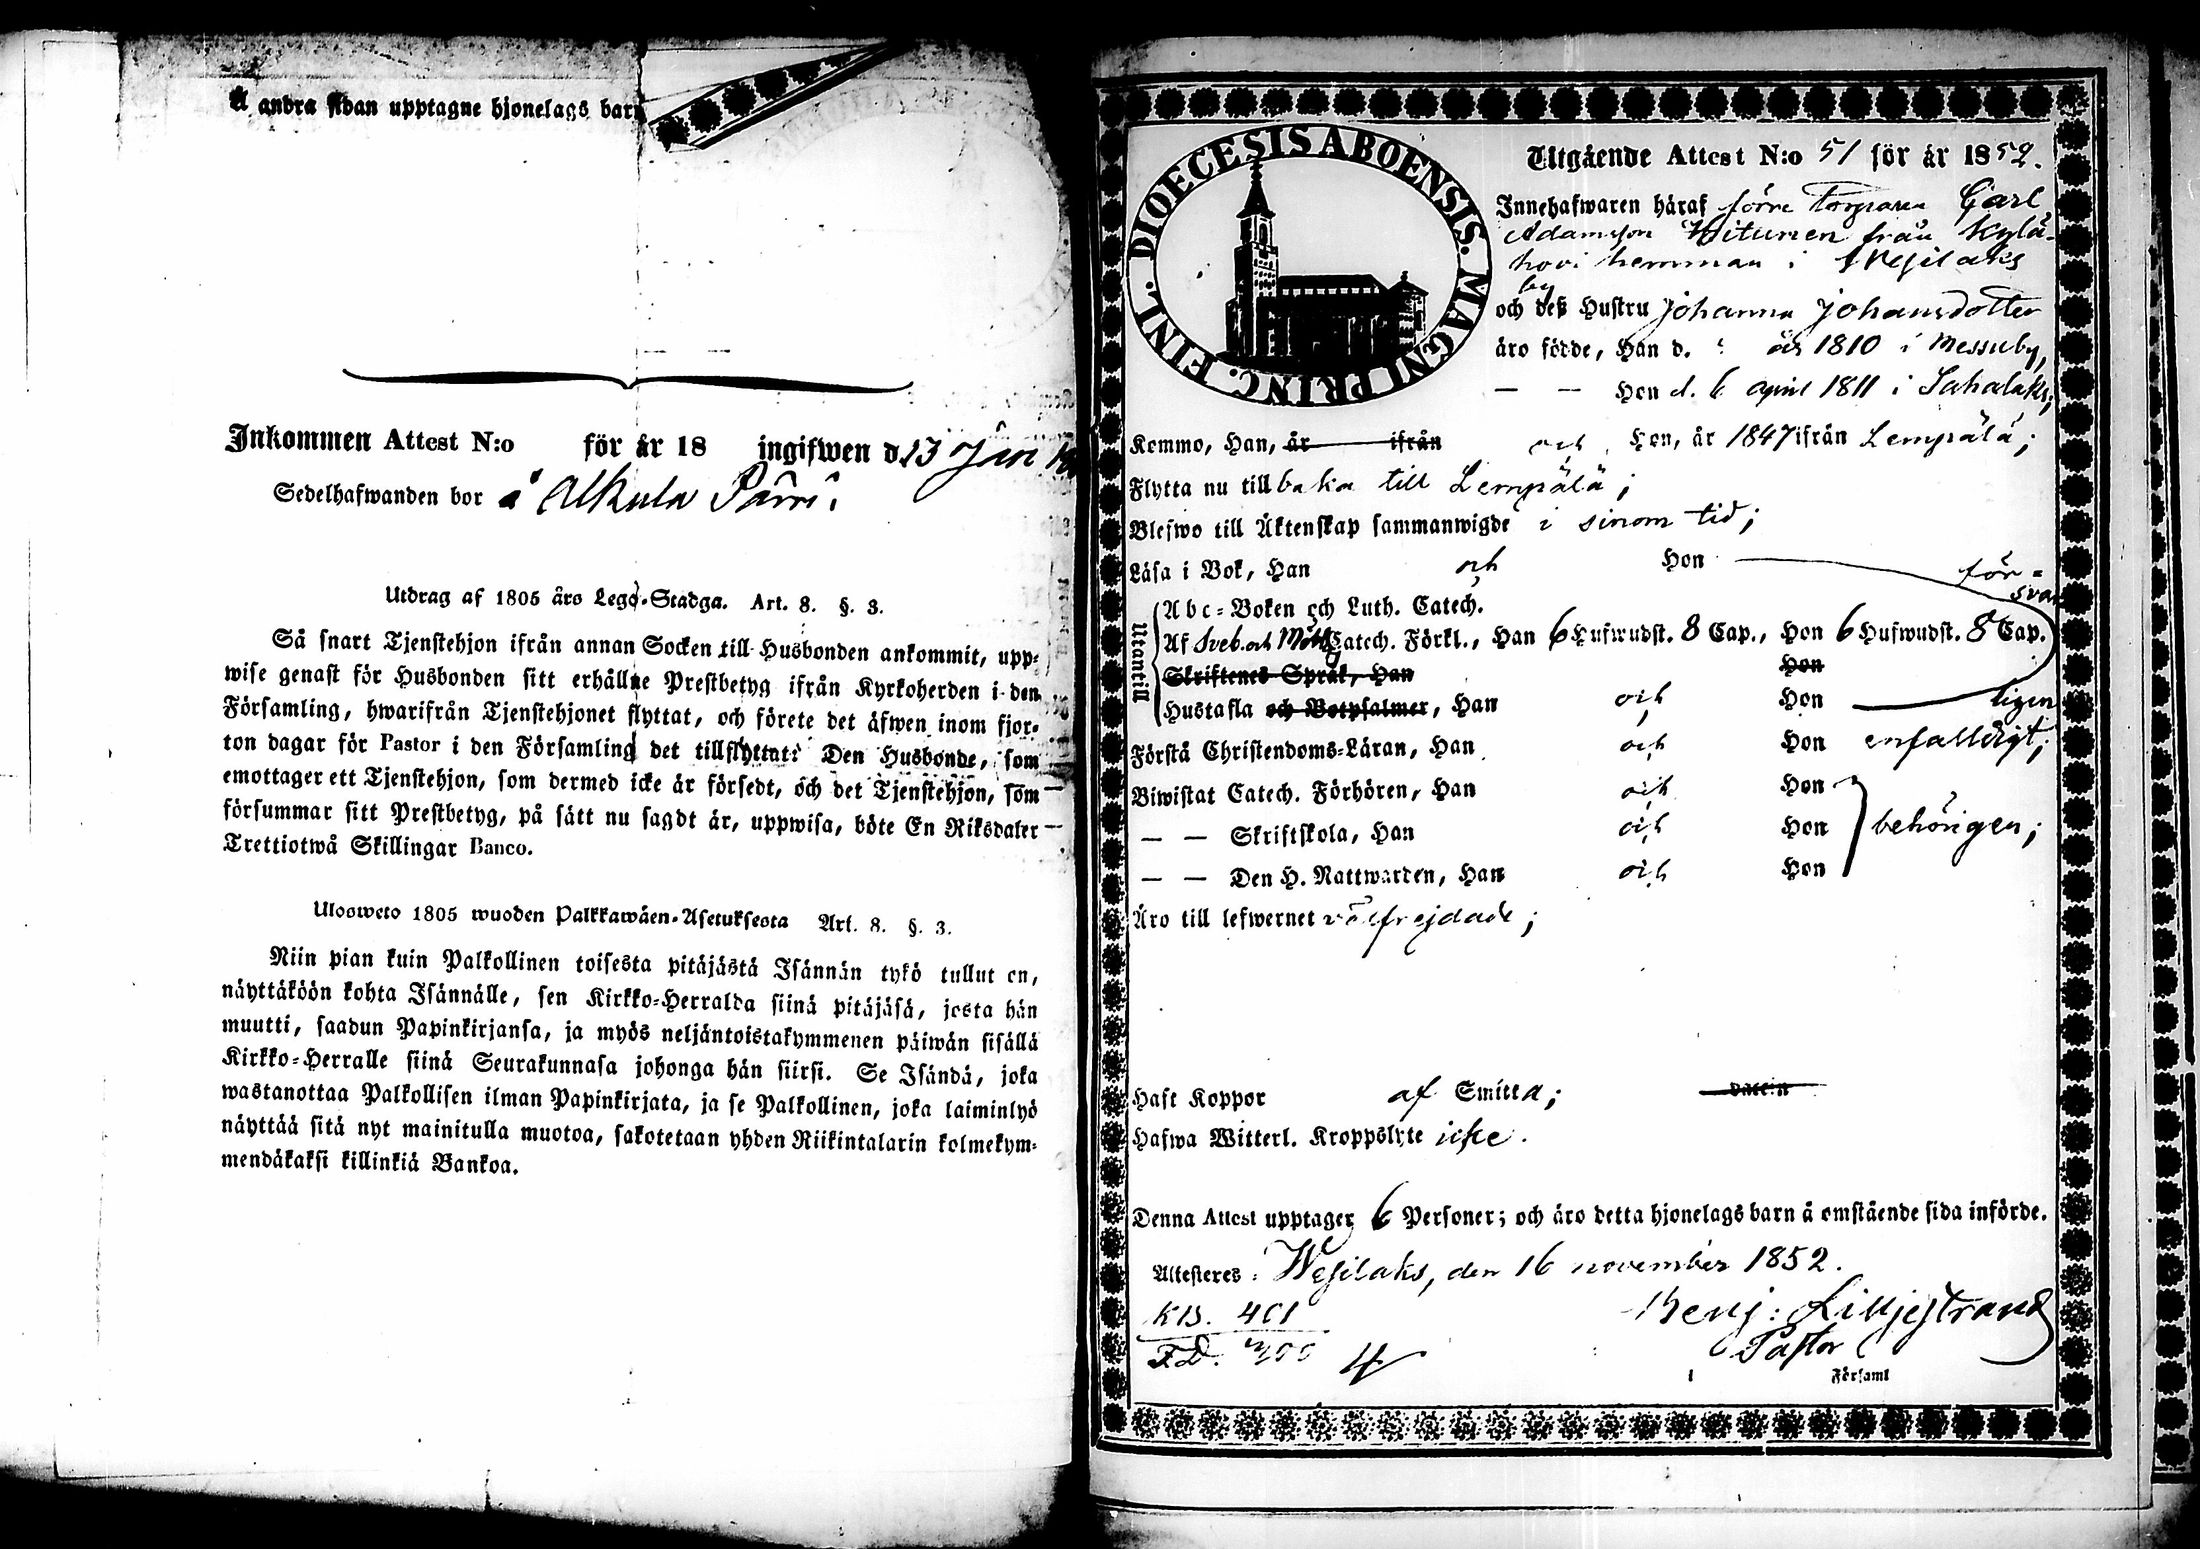 Å andra sidan upptagne hjonelags barn
Inkommen Attest N:o för år 18 ingifwen d. 13 Jan
Sedelhafwanden bor å Alkula Pärri.
Utdrag af 1805 års Lego-Stadga. Art. 8. §. 3.
Så snart Tjenstehjon ifrån annan Socken till Husbonden ankommit, upp-
wise genast för Husbonden sitt erhållne Prestbetyg ifrån Kyrkoherden i den
Församling, hwarifrån Tjenstehjonet flyttat, och förete det äfwen inom fjor-
ton dagar för Pastor i den Församling det tillflyttat: Den Husbonde, som
emottager ett Tjenstehjon, som dermed icke är försedt, och det Tjenstehjon, som
försummar sitt Prestbetyg, på sätt nu sagdt är, uppwisa, böte En Riksdaler
Trettiotwå Skillingar Banco.
Ulosweto 1805 wuoden Palkkawäen-Asetuksesta Art. 8. §. 3.
Niin pian kuin Palkollinen toisesta pitäjästä Isännän tykö tullut on,
näyttäköön kohta Isännälle, sen Kirkko-Herralda siinä pitäjäsä, josta hän
muutti, saadun Papinkirjansa, ja myös neljäntoistakymmenen päiwän sisällä
Kirkko-Herralle siinä Seurakunnasa johonga hän siirsi. Se Isändä, joka
wastanottaa Palkollisen ilman Papinkirjata, ja se Palkollinen, joka laiminlyö
näyttää sitä nyt mainitulla muotoa, sakotetaan yhden Riikintalarin kolmekym-
mendäkaksi killinkiä Bankoa.
DIOECESIS ABOENSIS. MAGNI PRINC. FINL.
Utgående Attest N:o 51 för år 1852.
Innehafwaren häraf förre Torparen Carl
Adamsson Hitunen från Kylä-
hovi hemman i Wesilaks
by
och deß Hustru Johanna Johansdotter
äro födde, Han d. år 1810 i Messuby,
— — Hon d. 6 april 1811 i Sahalaks;
Kommo, Han, år ifrån och Hon, år 1847 ifrån Lempälä;
Flytta nu tillbaka till Lempälä;
Blefwo till Äktenskap sammanwigde i sinom tid;
Läsa i Bok, Han och Hon för-
svar
Utantill
Abc-Boken och Luth. Catech.
Af Sveb. och Catech. Förkl., Han 6 Hufwudst. 8 Cap., Hon 6 Hufwudst. 8 Cap.
Skriftenes Språk, Han Hon
Hustafla och Botpsalmer, Han och Hon ligen
Förstå Christendoms-Läran, Han och Hon enfalldigt;
Biwistat Catech. Förhören, Han och Hon
— — Skriftskola, Han och Hon behörigen;
— — Den H. Nattwarden, Han och Hon
Äro till lefwernet välfrejdade;
Haft Koppor af Smitta; vaccin
Hafwa Witterl. Kroppslyte icke.
Denna Attest upptager 6 Personer; och äro detta hjonelags barn å omstående sida införde.
Attesteres: Wesilaks, den 16 november 1852.
KB. 401
Benj: Lilljestrand
Pastor
i Församl